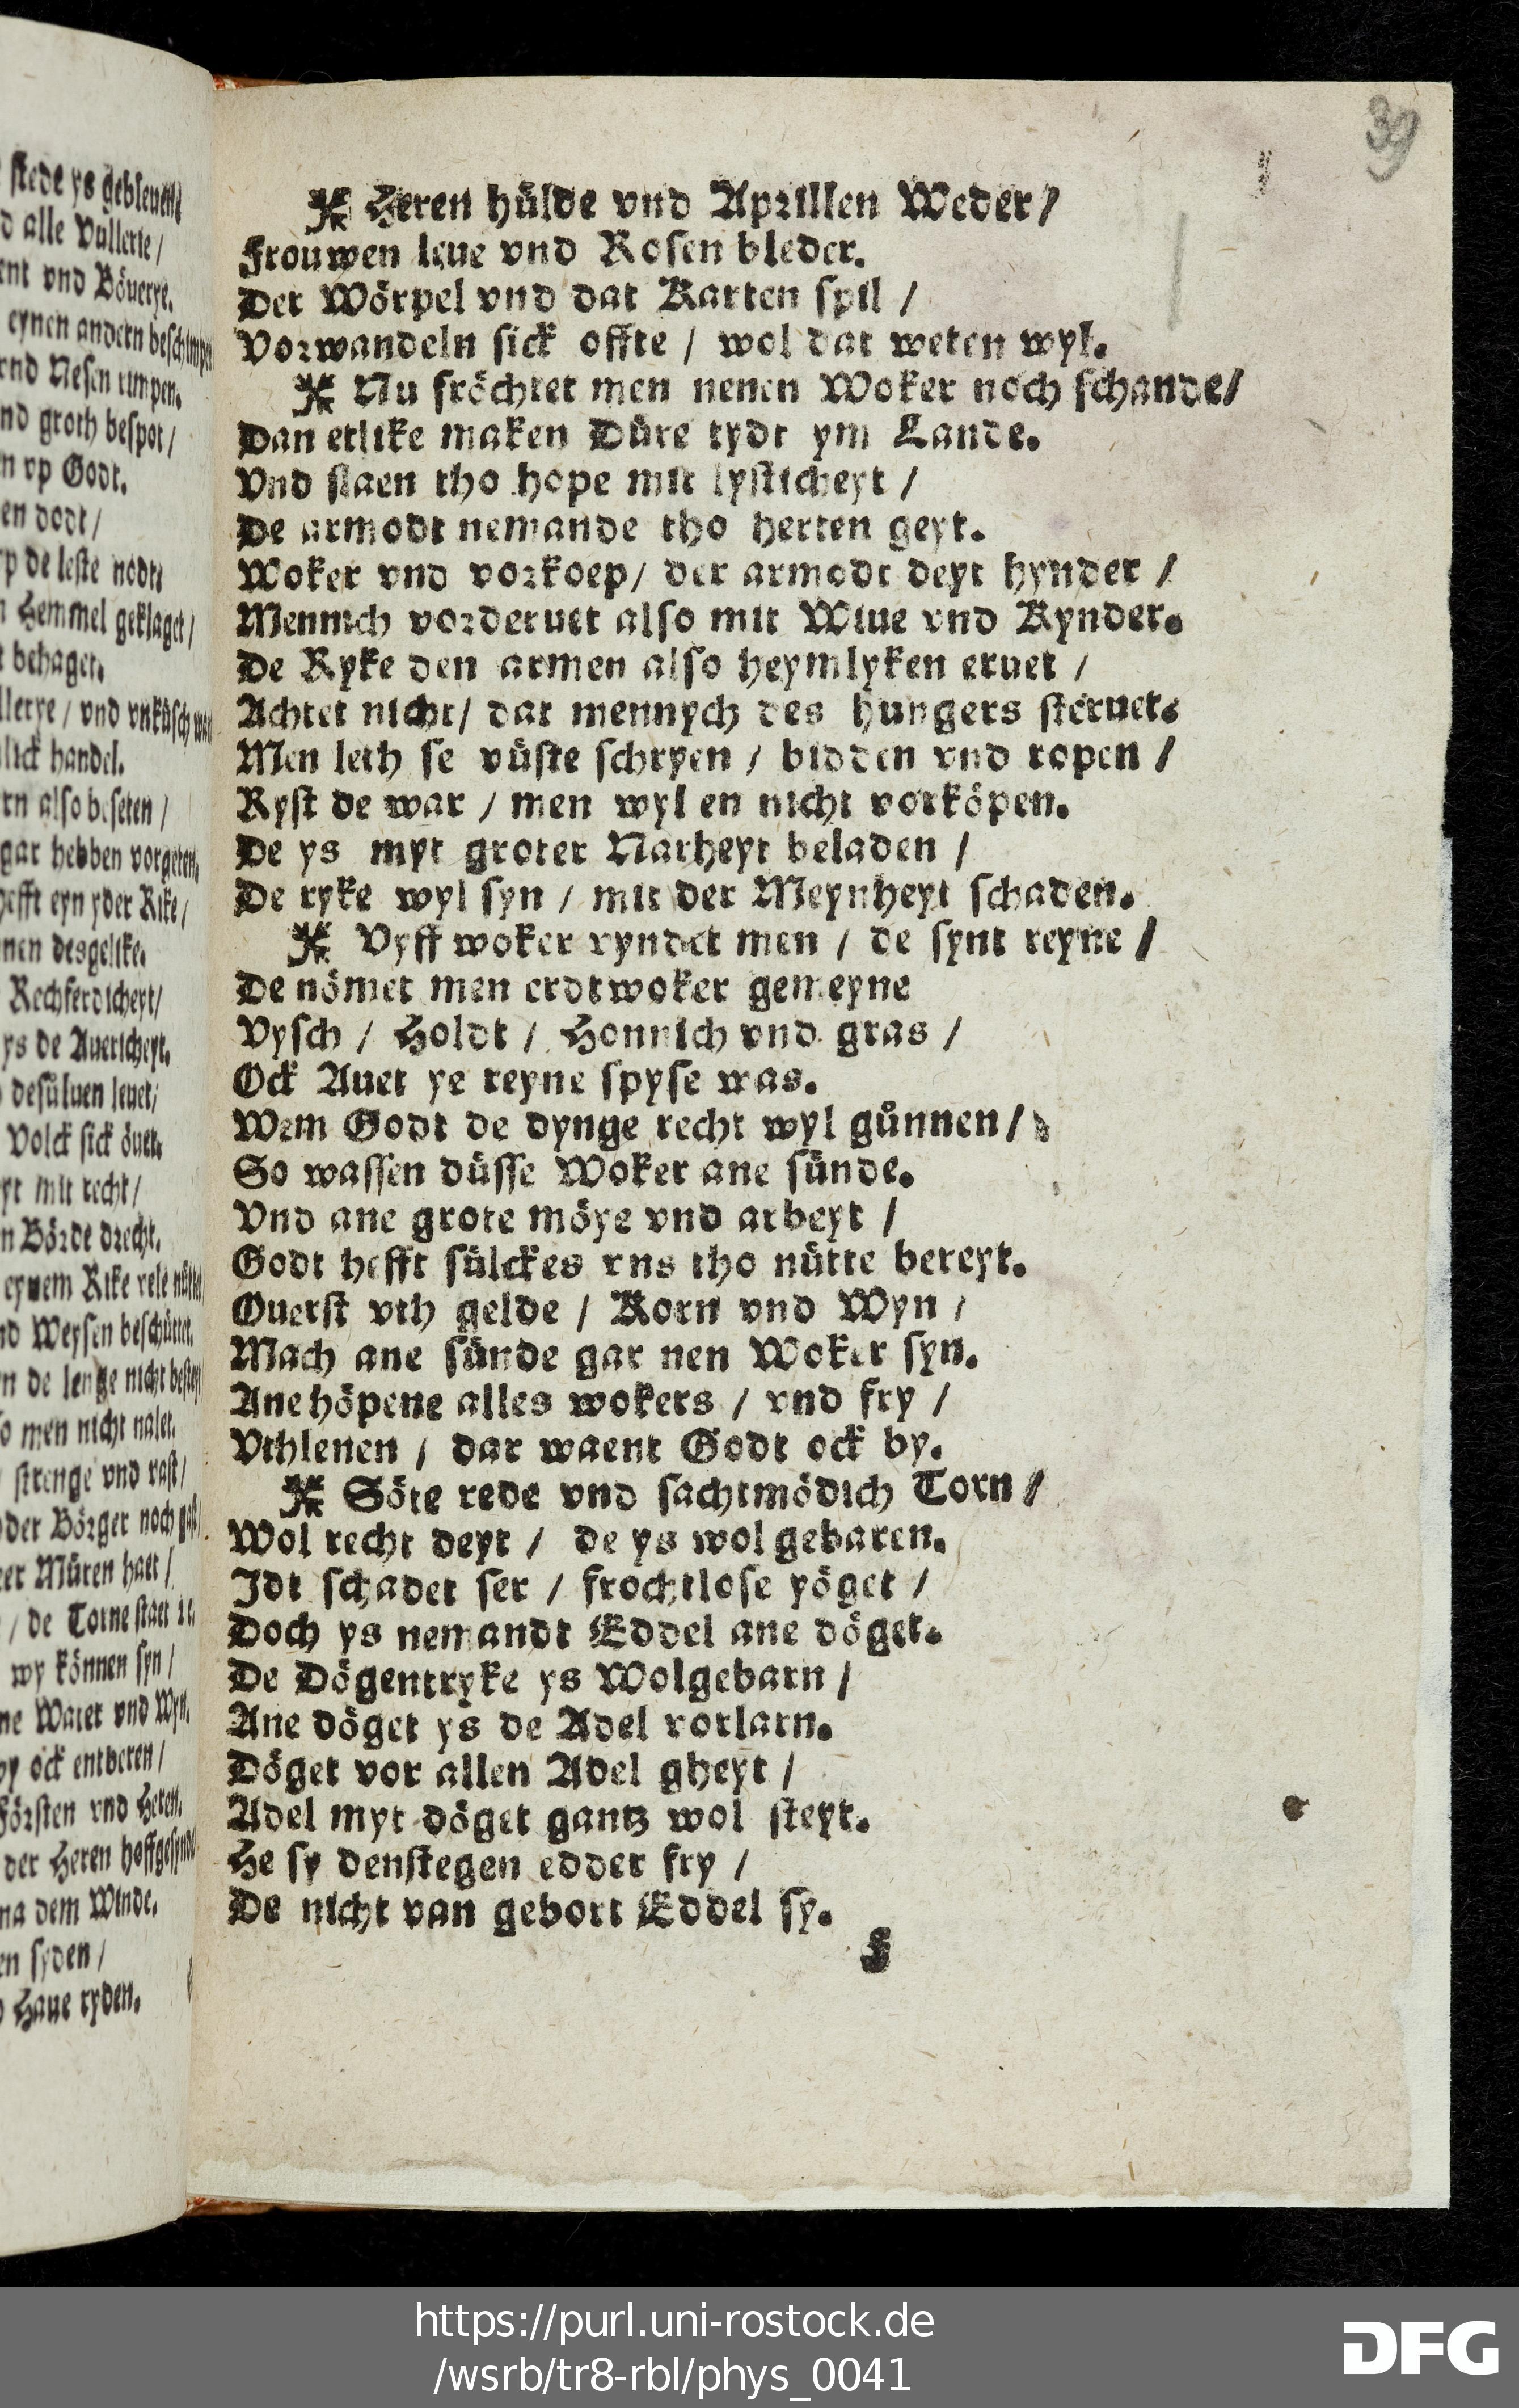 39
Heren hülde vnd Aprillen Weder /
Frouwen leue vnd Rosen bleder.
Der Wörpel vnd dat Karten spil /
Vorwandeln sick offte / wol dat weten wyl.
Nu fröchtet men nenen Woker noch schande /
Dan etlike maken Düre tydt ym Lande.
Vnd slaen tho hope mit lysticheyt /
De armodt nemande tho herten geyt.
Woker vnd vorkoep / der armodt deyt hynder /
Mennich vorderuet also mit Wiue vnd Kynder.
De Ryke den armen also heymlyken eruet /
Achtet nicht / dat mennych des hungers steruet.
Men leth se vüste schryen / bidden vnd ropen /
Ryst de war / men wyl en nicht vorköpen.
De ys myt groter Narheyt beladen /
De ryke wyl syn / mit der Meynheyt schaden.
Vyff woker vyndet men / de synt reyne /
De nömet men erdtwoker gemeyne
Vysch / Holdt / Honnich vnd gras /
Ock Auet ye reyne spyse was.
Wem Godt de dynge recht wyl gůnnen /
So wassen düsse Woker ane sünde.
Vnd ane grote möye vnd arbeyt /
Godt hefft sülckes vns tho nütte bereyt.
Ouerst vth gelde / Korn vnd Wyn /
Mach ane sünde gar nen Woker syn.
Ane höpene alles wokers / vnd fry /
Vthlenen / dar waent Godt ock by.
Söte rede vnd sachtmödich Torn /
Wol recht deyt / de ys wol gebaren.
Idt schadet ser / frochtlose yöget /
Doch ys nemandt Eddel ane döget.
De Dögentryke ys Wolgebarn /
Ane döget ys de Adel vorlarn.
Döget vor allen Adel gheyt /
Adel myt döget gantz wol steyt.
He sy denstegen edder fry /
De nicht van gebort Eddel sy.
https://purl.uni-rostock.de
/wsrb/tr8-rbl/phys_0041
DFG